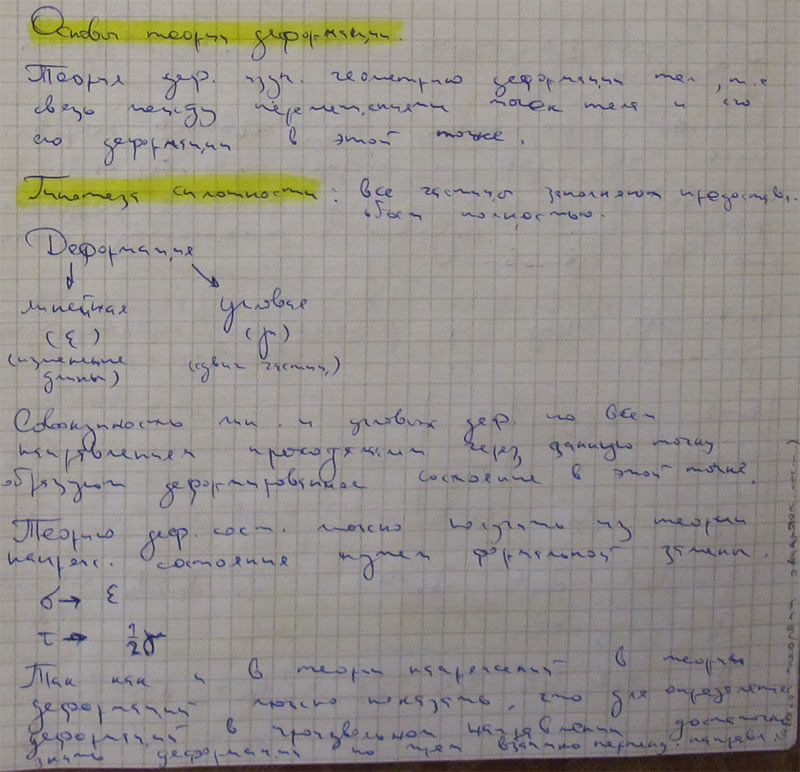 Основы теории деформации.
Теория деф. изуч. геометрию деформации тел, т.е
связь между перемещениями точек тела и его
его деформации в этой точке.
Гипотеза сплошности: все частицы заполняют предоставл.
объем полностью.
Деформация
линейная угловая
(ε) (γ)
(изменение (сдвиг частиц)
длины)
Совокупность лин. и угловых деф. по всем
направлениям проходящими через данную точку
образуют деформированное состояние в этой точке.
Теорию деф. сост. можно получить из теории
напряж. состояния путем формальной замены.
σ → ε
τ → 1/2 γ
Так как и в теории напряжений в теории
деформаций можно показать, что для определения
деформаций в произвольном направлении достаточно
знать деформации по трем взаимно перпенд. направл